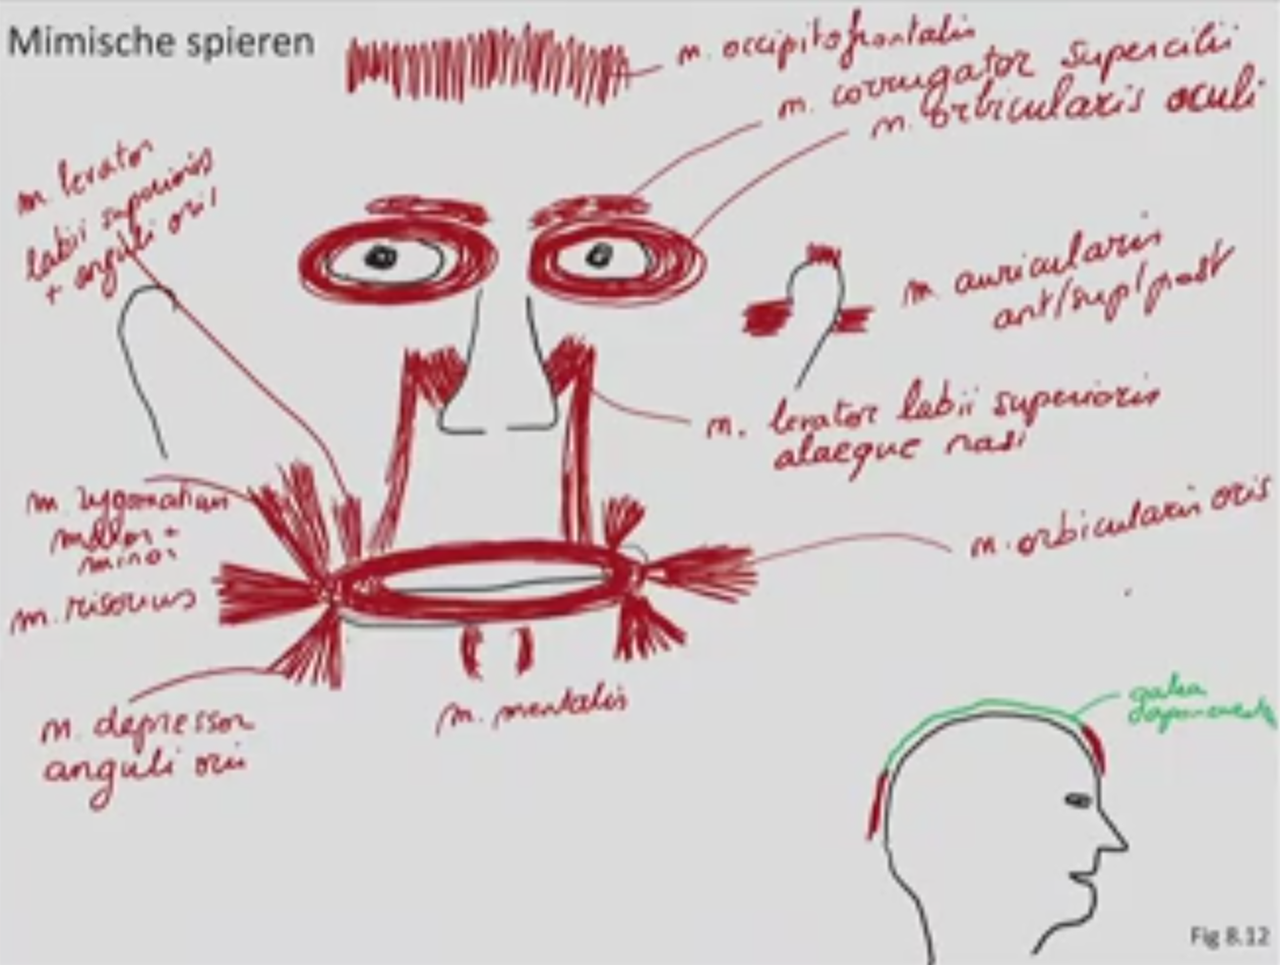 Mimische spieren
m. occipitofrontalis
m. corrugator supercilii
m. orbicularis oculi
m levator
labii superioris
+ anguli oris
m auricularis
ant/sup/post
m. levator labii superioris
alaeque nasi
m. zygomaticus
major +
minor
m. orbicularis oris
m. risorius
m. depressor
anguli oris
m. mentalis
galea
Fig 8.12